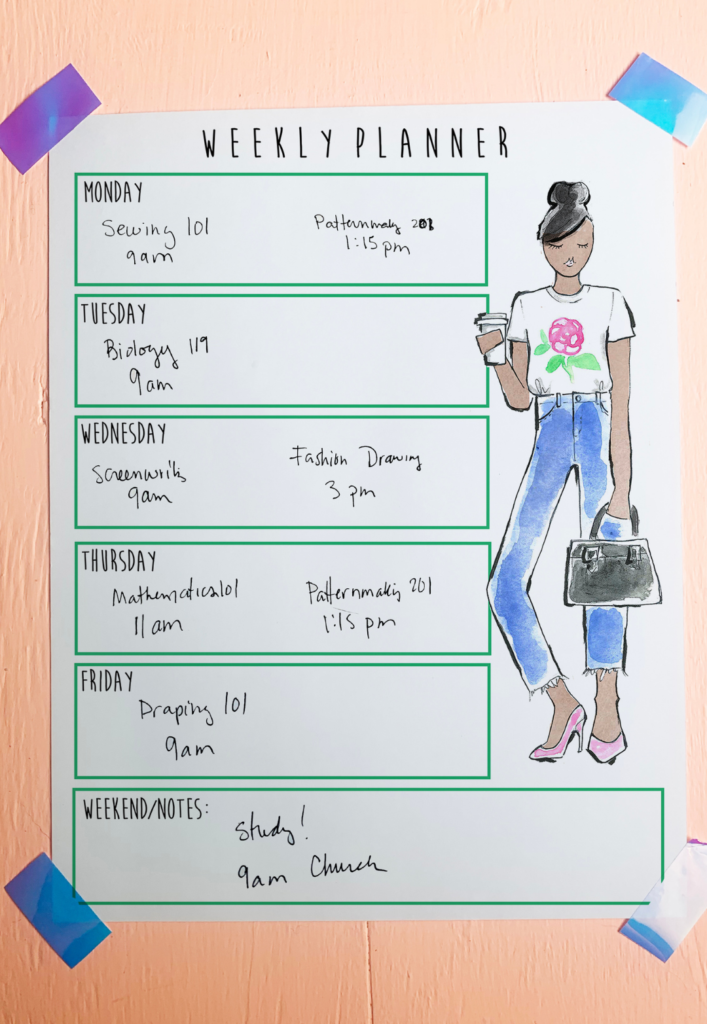 WEEKLY PLANNER
MONDAY
Sewing 101
9am
Patternmaking 201
1:15 pm
TUESDAY
Biology 119
9am
WEDNESDAY
Screenwriting
9am
Fashion Drawing
3 pm
THURSDAY
Mathematics 101
11 am
Patternmaking 201
1:15 pm
FRIDAY
Draping 101
9am
WEEKEND/NOTES:
Study!
9am Church